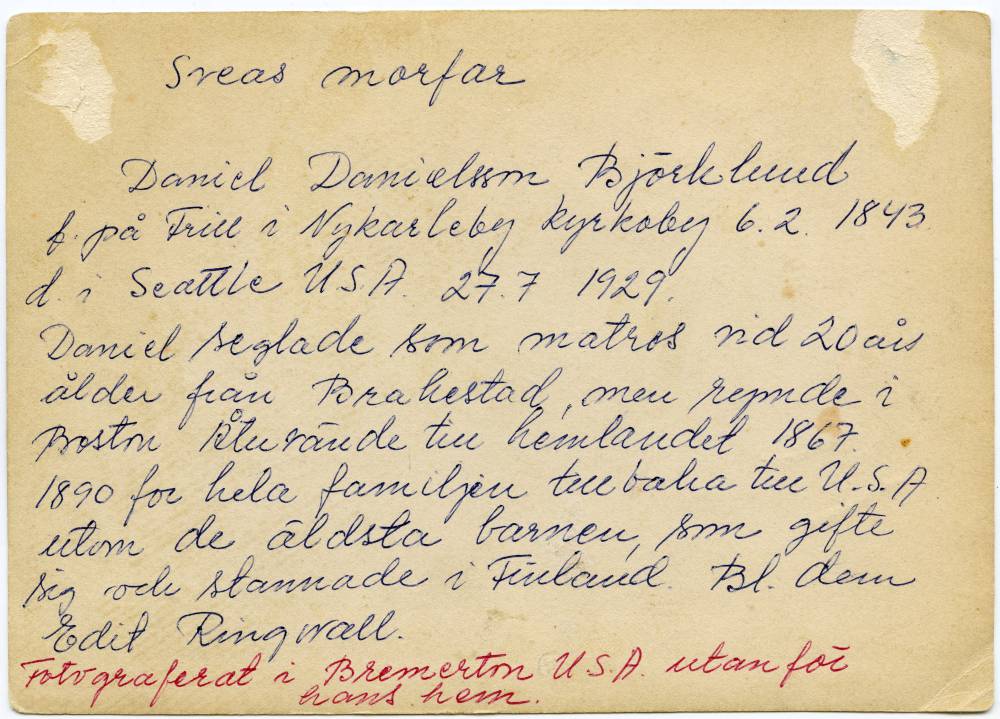 Sveas morfar
Daniel Danielsson Björklund
f. på Frill i Nykarleby kyrkoby 6.2. 1843.
d. i Seattle U.S.A. 27.7 1929.
Daniel seglade som matros vid 20 års
ålder från Brahestad, men rymde i
Boston Återvände till hemlandet 1867.
1890 for hela familjen tillbaka till U.S.A
utom de äldsta barnen, som gifte
sig och stannade i Finland. Bl. dem
Edit Ringwall.
Fotograferat i Bremerton U.S.A. utanför
hans hem.